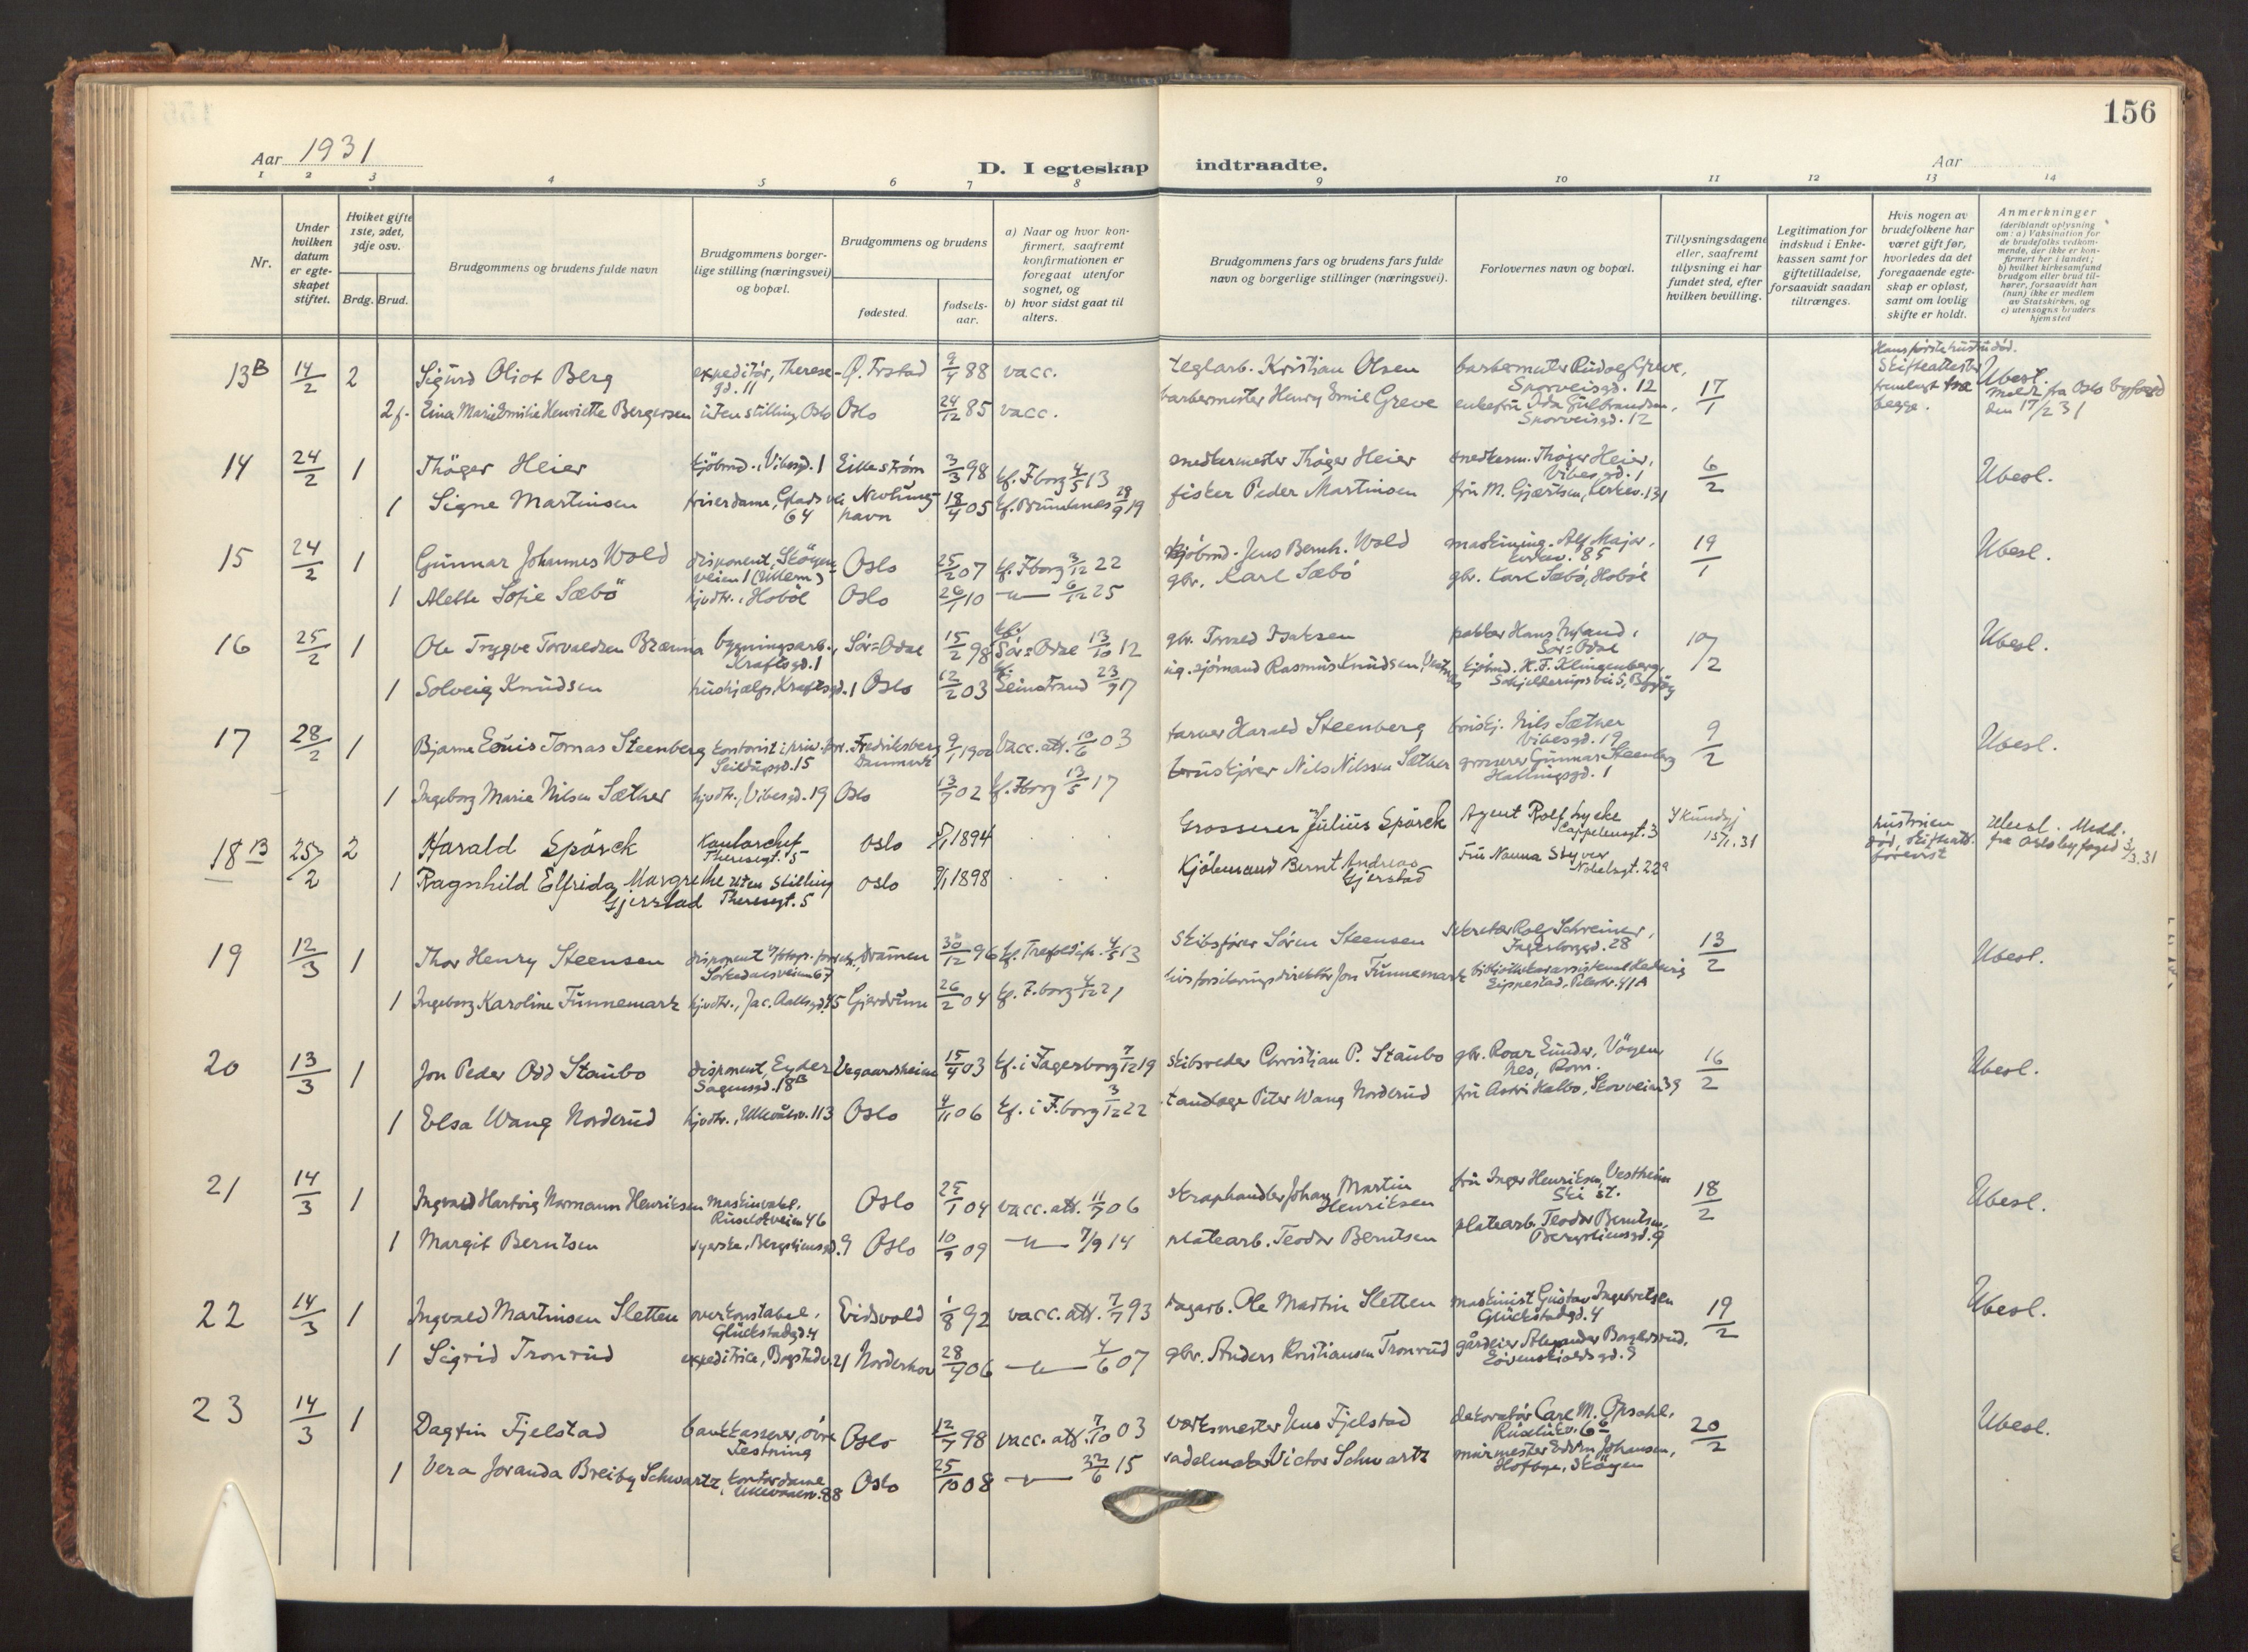 156
Aar 1931
D. I egteskap indtraadte.
Aar
1 2 3 4 5 6 7 8 9 10 11 12 13 14
Nr.
Under hvilken datum er egteskapet stiftet.
Hviket gifte 1ste, 2det, 3dje osv.
Brdg. Brud.
Brudgommens og brudens fulde navn
Brudgommens borgerlige stilling (næringsvei) og bopæl.
Brudgommens og brudens
fødested.
fødselsaar.
a) Naar og hvor konfirmert, saafremt konfirmationen er foregaat utenfor sognet, og
b) hvor sidst gaat til alters.
Brudgommens fars og brudens fars fulde navn og borgerlige stillinger (næringsvei).
Forlovernes navn og bopæl.
Tillysningsdagene eller, saafremt tillysning ei har fundet sted, efter hvilken bevilling.
Legitimation for indskud i Enkekassen samt for giftetilladelse, forsaavidt saadan tiltrænges.
Hvis nogen av brudefolkene har været gift før, hvorledes da det foregaaende egteskap er opløst, samt om lovlig skifte er holdt.
Anmerkninger (deriblandt oplysning om: a) Vaksination for de brudefolks vedkommende, der ikke er konfirmert her i landet; b) hvilket kirkesamfund brudgom eller brud tilhører, forsaavidt han (hun) ikke er medlem av Statskirken, og c) utensogns bruders hjemsted
13B 14/2 2 Sigurd Oliot Berg expeditør, Therese-gd. 11 Ø. Frstad 9/4 88 vacc. teglarb. Kristian Olsen barbermester Rudolf Greve, Sporveisgd. 12 17/1 Ubesl. meld. fra Oslo byfoged den 17/2 31
2 f. Marie Emilie Henriette Bergersen uten stilling Oslo Oslo 24/12 85 vacc. barbermester Henry Emil Greve enkefru Ida Gulbrandsen, Sporveisgd. 12
14 24/2 1 Thöger Heier kjöbmd., Vibesgd. 1 Eikeström 3/3 98 kf. F.borg 4/5 13 snedkermester Thöger Heier snedkerm. Thöger Heier, Vibesgd. 1 6/2 Ubesl.
1 Signe Martinsen friserdame, 64 18/4 05 19 fisker Peder Martinsen fru M. Gjærtsen, Kirkev. 131
15 24/2 1 Gunnar Johannes Wold disponent, Skøyenveien 1 (Ullern) Oslo 25/2 07 kf. F.borg 3/12 22 kjöbmd. Jens Bernh. Wold maskining. Alf Major, Kirkev. 85 19/1 Ubesl.
1 Alette Sofie Sæbö hjvdtr., Hoböl Oslo 26/1 10 —"— 6/12 25 gbr. Karl Sæbö gbr. Karl Sæbö, Hoböl
16 25/2 1 Ole Trygve Torvaldsen Brænna bygningsarb., Kraftsgd. 1 Sör-Odal 15/2 98 Sör-Odal 13/10 12 gbr. Torvald Isaksen Sör-Odal 10/2 Ubesl.
1 Solveig Knudsen hushjælp, Kraftsgd. 1 Oslo 12/2 03 Leinstrand 23/9 17 sjömand Rasmus Knudsen kjöbmd. H. F. Klingenberg, Schjelderupsvei 5, Bygdöy
17 28/2 1 Bjarne Louis Tomas Steenberg kontorist Seilduksgd. 15 Fredriksberg Danmark 9/1 1900 Vacc. att. 10/6 03 farver Harald Steenberg bruskj. Nils Sæther Vibesgd. 19 9/2 Ubesl.
1 Ingeborg Marie Nilsen Sæther hjvdtr., Vibesgd. 19 Oslo 13/7 02 kf. F.borg 13/5 17 bruskjører Nils Nilssen Sæther grosserer Gunnar Steenberg Hallingsgd. 1
18 B 25/2 2 Harald Spørck Kontorchef Theresegt. 5 Oslo 1894 Grosserer Julius Spørck Agent Rolf Lycke Cappelensgt. 3 15/1. 31 hustruen død, skifteatt. forevist Ubesl. Medd. fra Oslo byfoged 3/3. 31
1 Ragnhild Elfrida Margrethe Gjerstad uten stilling Theresegt. 5 Oslo 1898 Kjöbmand Bernt Andreas Gjerstad Fru Nanna Styver Nobelsgt. 22a
19 12/3 1 Thor Henry Steensen disponent Sørkedalsveien 67 Dramen 30/12 96 kf. Trefoldigh. 4/5 13 Skibsfører Sören Steensen sekretær Rolf Schreiner, Jngeborggd. 28 13/2 Ubesl.
1 Ingeborg Karoline Funnemark hjvdtr., Jac. Aallsgd. 45 Gjerdrum 26/2 04 kf. F.borg 4/12 21 livsforsikringsdirektör Jon Funnemark bibliotekarassistent Hedvig Eippestad, Pilestr. 41A
20 13/3 1 Jon Peder Odd Staubo disponent, Eyder Sagensgd. 18B Vegaardsheien 15/9 03 kf. i Fagerborg 7/12 19 skibsreder Christian P. Staubo gbr. Roar Lunder, Vöyen, 16/2 Ubesl.
1 Elsa Wang Norderud hjvdtr., Ullevålsv. 113 Oslo 4/11 06 kf. i F.borg 3/12 22 tandlæge Peter Wang Norderud fru Astri Kalbo, Skovveien 39
21 14/3 1 Ingvald Hartvig Normann Henriksen maskinvakt, Ruseløkveien 46 Oslo 25/1 04 vacc. att. 11/7 06 skraphandler Johan Martin Henriksen fru Inger Henriksen, Vestheim Ski st. 18/2 Ubesl.
1 Margit Berntsen syerske, Bergsliensgd. 9 Oslo 10/9 09 —"— 7/9 14 platearb. Teodor Berntsen platearb. Teodor Berntsen, Bergsliensgd. 9
22 14/3 1 Ingvald Martinsen Sletten overkonstabel, Glückstadgd. 4 Eidsvold 1/8 92 vacc. att. 7/7 93 dagarb. Ole Martin Sletten maskinist Gustav Ingebretsen Glückstadgd. 4 19/2 Ubesl.
1 Sigrid Tronrud expeditrice, Bogstadv. 21 Norderhov 28/4 06 —"— 4/6 07 gbr. Anders Kristiansen Tronrud gårdeier Alexander Borgersrud, Løvenskioldsgd. 9
23 14/3 1 Dagfin Fjelstad bankkasserer, øvre Festning Oslo 12/7 98 vacc. att. 7/10 03 værksmester Jens Fjelstad dekoratör Carl M. Opsahl, Ruseløkv. 6 20/2 Ubesl.
1 Vera Joranda Breiby Schwartz, kontordame Ullevaalsv. 88 Oslo 25/10 08 15 sadelmaker Victor Schwartz murmester Edvin Johansen, Hofbye, Skøyen